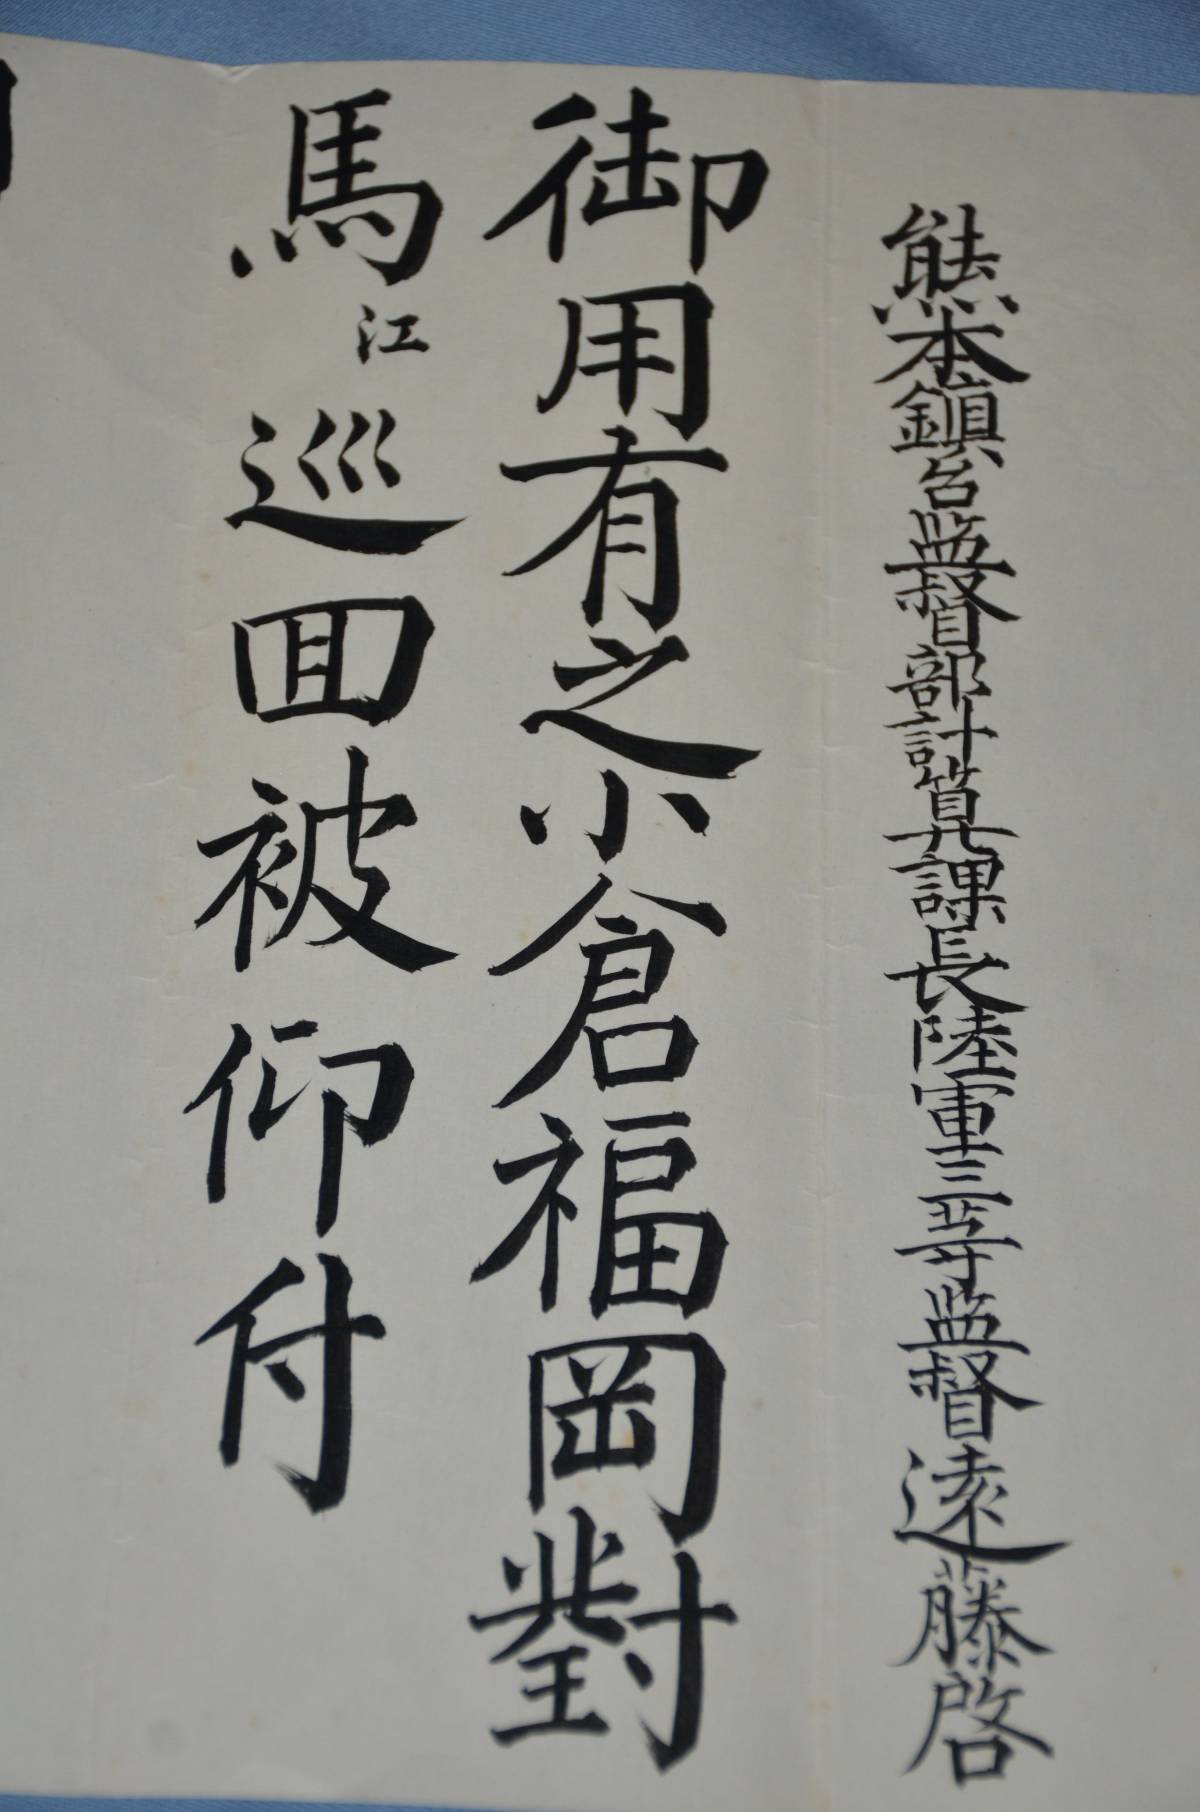 熊本鎮台監督部計算課長陸軍三等監督遠藤啓
御用有之小倉福岡對
馬江巡回被仰付